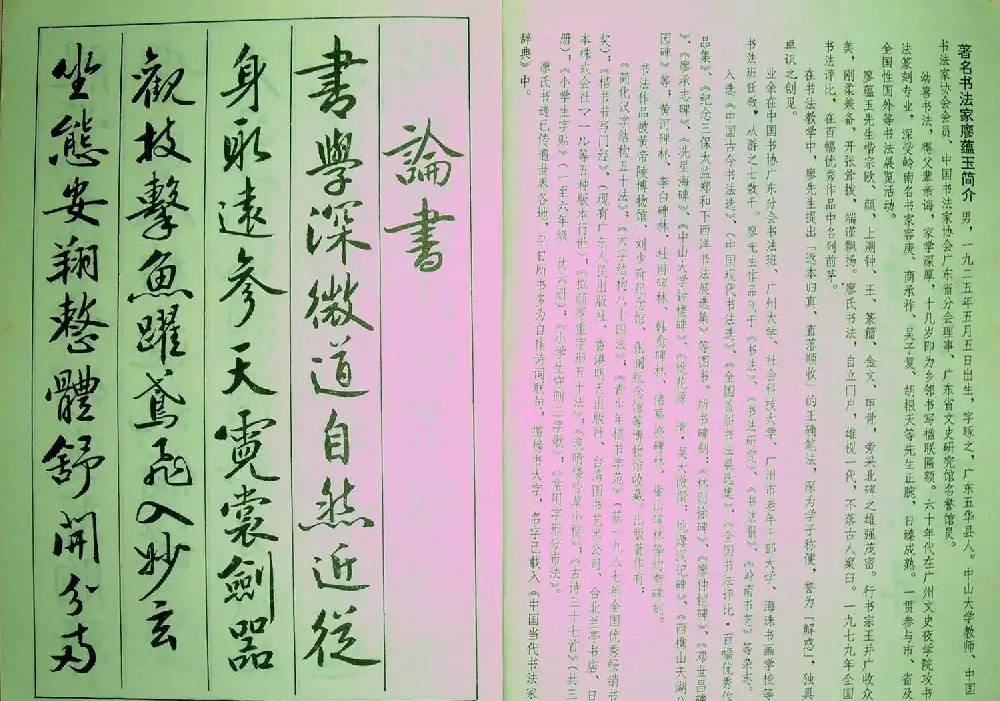 著名书法家廖蕴玉简介 男，一九二五年五月五日出生，字琢之，广东五华县人。中山大学教师、中国
书法家协会会员、中国书法家协会广东省分会理事、广东省文史研究馆名誉馆员。
幼喜书法，得父辈亲诲，家学深厚，十几岁即为乡邻书写楹联匾额。六十年代在广州文史夜学院攻书
法篆刻专业，深受岭南名书家容庚、商承祚、吴子复、胡根天等先生正腕，日臻成熟。一贯参与市、省及
全国性国外等书法展览活动。
廖蕴玉先生楷宗欧、颜、上溯钟、王、篆籀、金文、甲骨，旁采北碑之雄强茂密。行书宗王并广收众
美，刚柔兼备，开张耸拔，端谨飘扬。廖氏书法，自立门户，雄视一代，不落古人窠臼。一九七九年全国
书法评比，在百幅优秀作品中名列前茅。
在书法教学中，廖先生提出「返本归真，直落顺收」的正确笔法，深为学子称便，誉为「解惑」，独具
卓识之创见。
业余在中国书协广东分会书法班、广州大学、社会科技大学、广州市老年干部大学、海珠书画学校等
书法班任教，从游之士数千。廖先生作品刊于《书法》、《书法研究》、《书法报》、《岭南书艺》等杂志。
入选《中国古今书法选》、《中国现代书法选》、《全国首届书法展选集》、《全国书法评比·百幅优秀作
品集》、《纪念三保太监郑和下西洋书法展选集》等图书。所书碑刻：《林则徐碑》、《廖仲恺碑》、《邓世昌碑
》、《廖承志碑》、《冼星海碑》、《中山大学钟楼碑》、《桃花源
国碑》等，黄河碑林、李白碑林、杜甫碑林、韩愈碑林、诸葛亮碑林、崔山碑林等均有碑刻。
书法作品被黄帝陵博物馆、刘少奇纪念馆、张澜纪念馆等博物馆收藏。出版著作有：
《简化汉字结构五十法》、《大字结构八十四法》、《青少年楷书字范》（获一九八七年全国优秀畅销书
奖）、《楷书书写门径》、（现有广东人民出版社、香港明天出版社、台湾图书艺术公司、台北兰亭书店、日
册）、《小学生字帖》（一至六年级 共六册）、《小学生守则三字歌》、《常用字形分布法》。
廖氏书迹已传遍世界各地，平日所书多为自作诗词联句，擅榜书大字，名字已载入《中国当代书法家
辞典》中。
論書
書學深微道自然近從
身取遠參天霓裳劍器
觀技擊魚躍鳶飛入妙玄
坐態安翔整體舒開分布